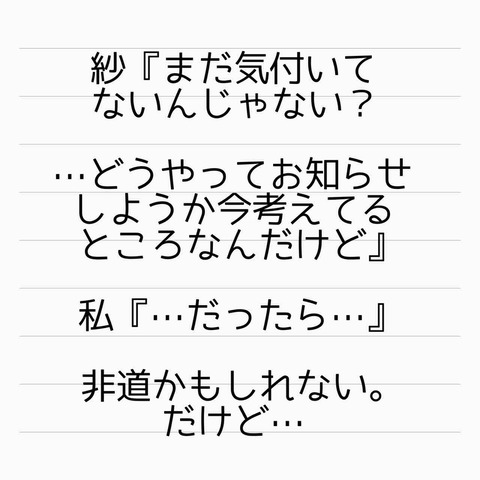 紗『まだ気付いて
ないんじゃない？
…どうやってお知らせ
しようか今考えてる
ところなんだけど』
私『…だったら…』
非道かもしれない。
だけど…